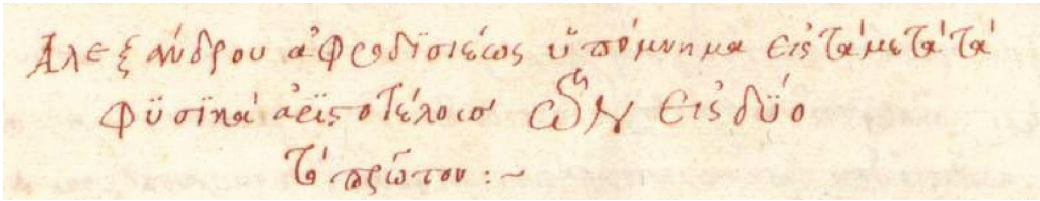 Ἀλεξάνδρου ἀφροδϊσιέως ὑπόμνημα εἰς τὰ μετὰ τὰ
φϋσϊκὰ ἀρϊστοτέλους εἰς δϋό
τὸ πρῶτον :~